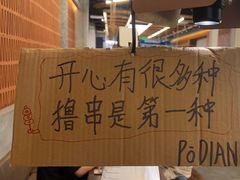 开心有很多种
撸串是第一种
PōDIAN